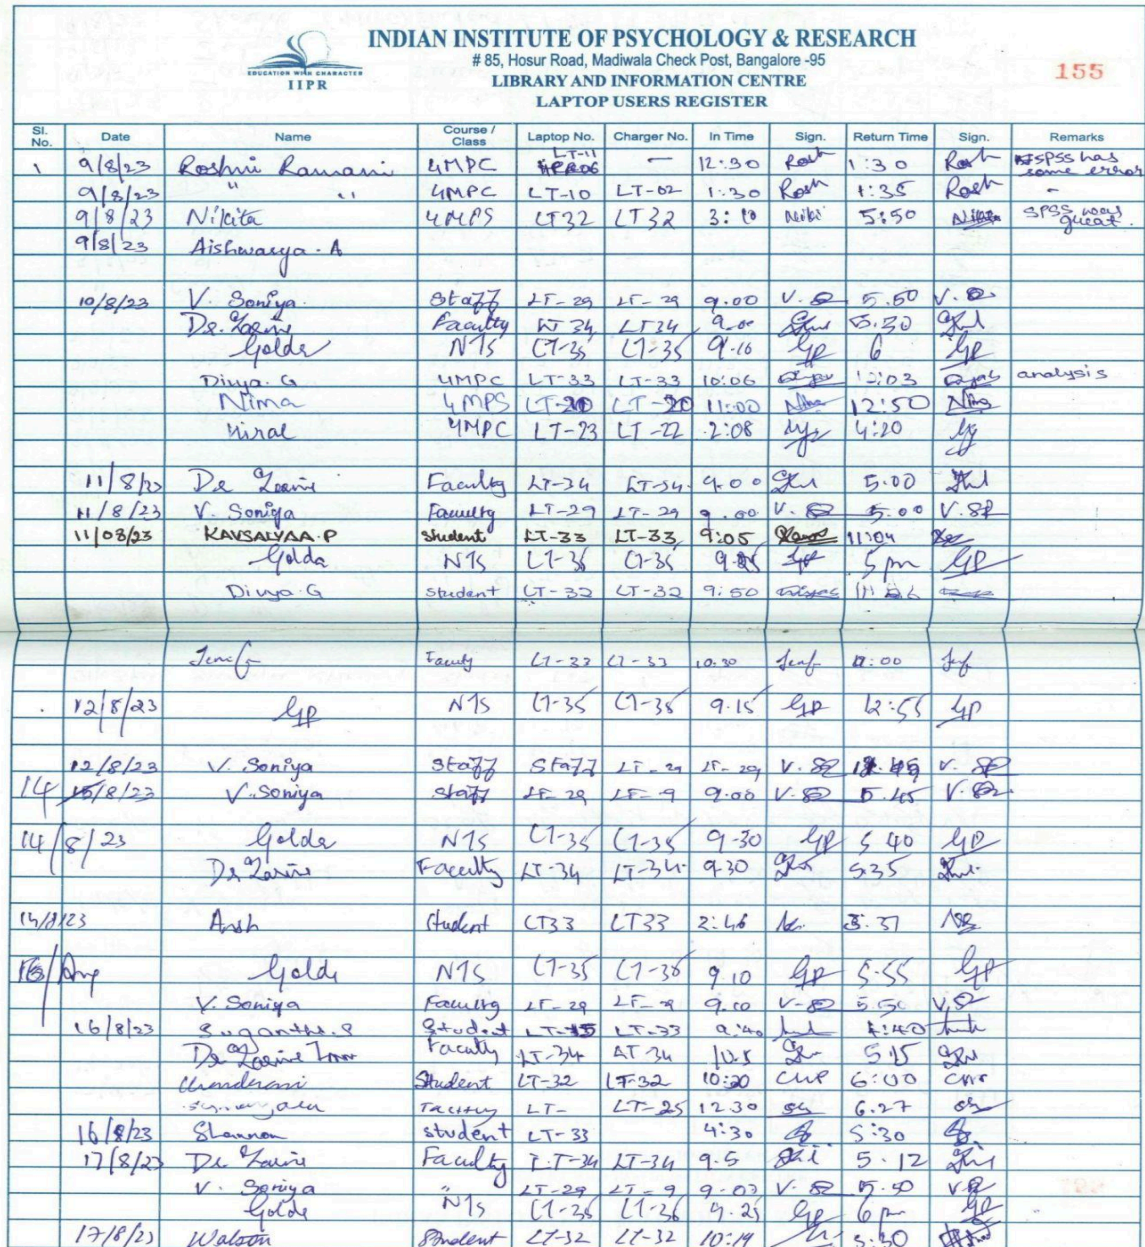 INDIAN INSTITUTE OF PSYCHOLOGY & RESEARCH
# 85, Hosur Road, Madiwala Check Post, Bangalore -95
EDUCATION WITH CHARACTER
IIPR
LIBRARY AND INFORMATION CENTRE
LAPTOP USERS REGISTER
155
Sl. No. Date Name Course / Class Laptop No. Charger No. In Time Sign. Return Time Sign. Remarks
1 9/8/23 Roshni Ramani 4MPC LT-11 - 12:30 Rosh 1:30 Rosh SPSS has some error
9/8/23 " " 4MPC LT-10 LT-02 1:30 Rosh 1:35 Rosh -
9/8/23 Nikita 4MPS LT32 LT32 3:10 Niki 5:50 Nikita SPSS was great.
9/8/23 Aishwarya. A
10/8/23 V. Soniya. Staff LT-29 LT-29 9.00 V. 5.50 V.
Dr. Faculty LT34 9.00 5.30
Golda NTS LT-35 LT-35 9.10 GP 6 GP
Divya. G 4MPC LT-33 LT-33 10:06 12:03 analysis
Nima 4MPS LT-20 LT-20 11:00 Nima 12:50 Nima
4MPC LT-23 LT-22 2:08 4:20
11/8/23 Dr Faculty LT-34 LT-34. 9.00 5.00
11/8/23 V. Soniya Faculty LT-29 LT-29 9.00 V. 5.00 V.
11/08/23 KAVSALYAA.P student LT-33 LT-33 9:05 11:04
Golda NTS LT-35 LT-35 5 pm GP
Divya.G student LT-32 LT-32 9:50
LT-33 LT-33 10.30 :00
12/8/23 GP NTS LT-35 LT-35 9.15 GP 12:55 GP
12/8/23 V. Soniya Staff Staff LT-29 LT-29 V. V.
14/8/23 V. Soniya staff LT-29 LT-9 9.00 V. 5.45 V.
14/8/23 Golda NTS LT-35 LT-35 9-30 GP 5 40 GP
Dr Faculty LT-34 LT-34. 9.30 5.35
14/8/23 Ansh Student LT33 LT33 2:46 3.37
Aug Golda NTS LT-35 LT-35 9.10 GP 5.55 GP
V. Soniya Faculty LT-29 9.00 V. 5.50 V.
16/8/23 Suganthi.S Student LT-33 9:40 4:40
Dr Faculty LT-34 LT-34 10.5 515
Student LT-32 LT-32 10:20 CMP 6:00
LT- LT-25 12.30 6.27
16/8/23 Shannon student LT-33 4:30 5:30
17/8/23 Dr Faculty LT-34 LT-34 9.5 5.12
V. Soniya " LT-29 LT-9 9.03 V. 5.50 V.
Golda NTS LT-35 LT-35 9.25 GP 6 pm GP
17/8/23 Watson Student LT-32 LT-32 10:19 5:30